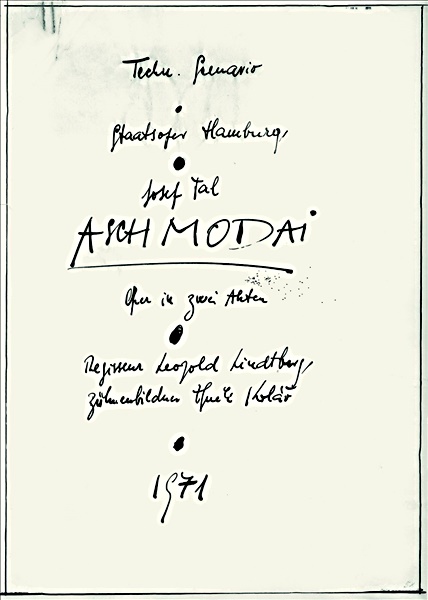 Techn. Szenario
Staatsoper Hamburg,
Josef Tal
ASCHMODAI
Oper in zwei Akten
Regisseur Leopold Lindtberg,
Bühnenbildner Zbyněk Kolář
1971